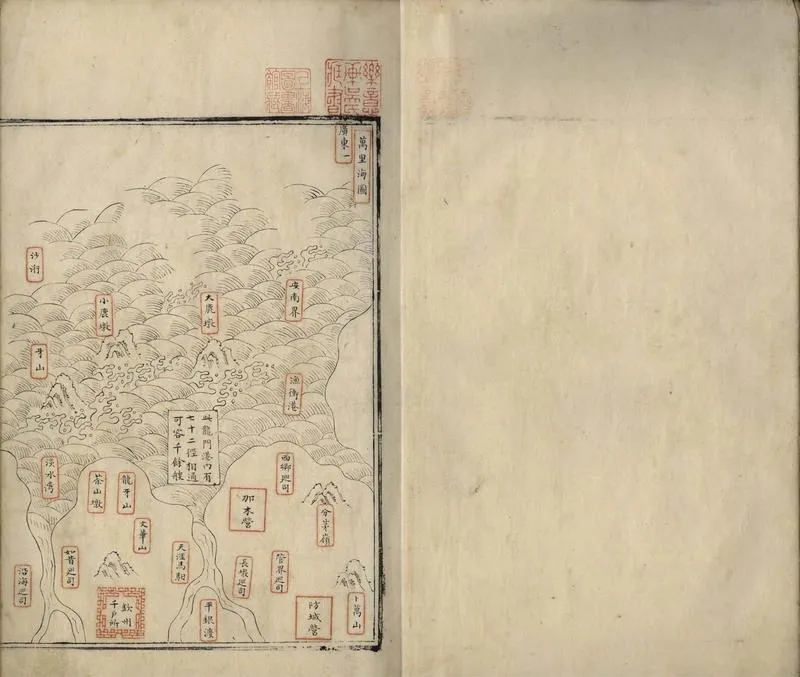 萬里海圖
廣東一
安南界
大鹿墩
小鹿墩
漁衛港
牙山
此龍門港內有
七十二徑相通
可容千餘艘
淡水湾
茶山墩
龍牙山
西鄉廵司
那木營
分茅嶺
文華山
天涯馬馹
長墩廵司
管界廵司
如昔廵司
沿海廵司
欽州
千戶所
平銀渡
防城營
卜萬山